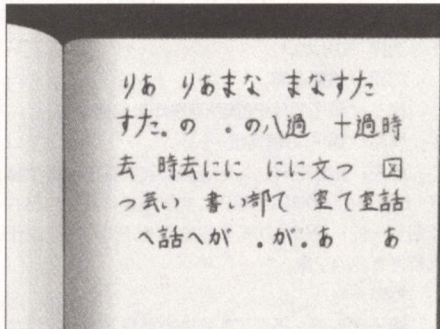 りあ りあまな まなすた
すた。の 。の八過 十過時
去 時去にに にに文つ 図
つ芸い 書い部て 室て室話
へ話へが 。が。あ あ